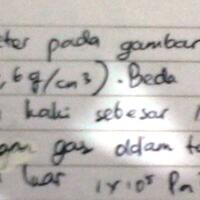 ter pada gambar
,6 g/cm³). Beda
kaki sebesar 1
gas dldam ta
luar 1 x 10⁵ Pa